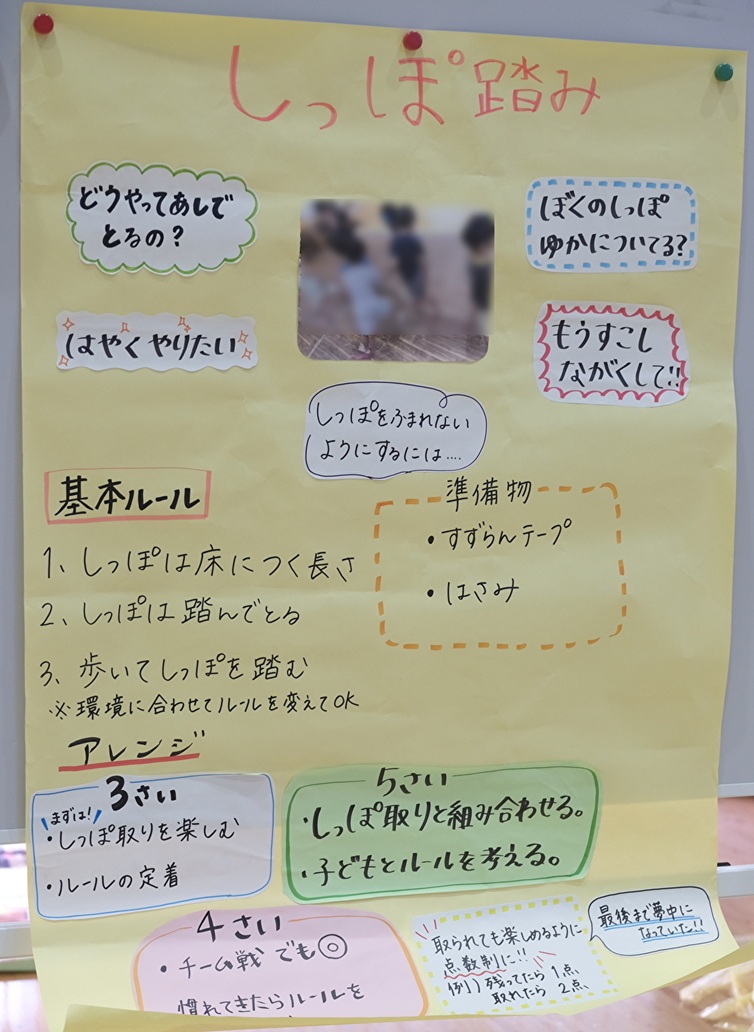 しっぽ踏み
どうやってあしで
とるの？
ぼくのしっぽ
ゆかについてる？
はやくやりたい
もうすこし
ながくして!!
しっぽをふまれない
ようにするには....
基本ルール
1、しっぽは床につく長さ
2、しっぽは踏んでとる
3、歩いてしっぽを踏む
※環境に合わせてルールを変えてOK
準備物
・すずらんテープ
・はさみ
アレンジ
3さい
まずは!
・しっぽ取りを楽しむ
・ルールの定着
5さい
・しっぽ取りと組み合わせる。
・子どもとルールを考える。
4さい
・チーム戦でも◎
慣れてきたらルールを
取られても楽しめるように
点数制に!!
例）残ってたら 1点
取れたら 2点
最後まで夢中に
なっていた!!